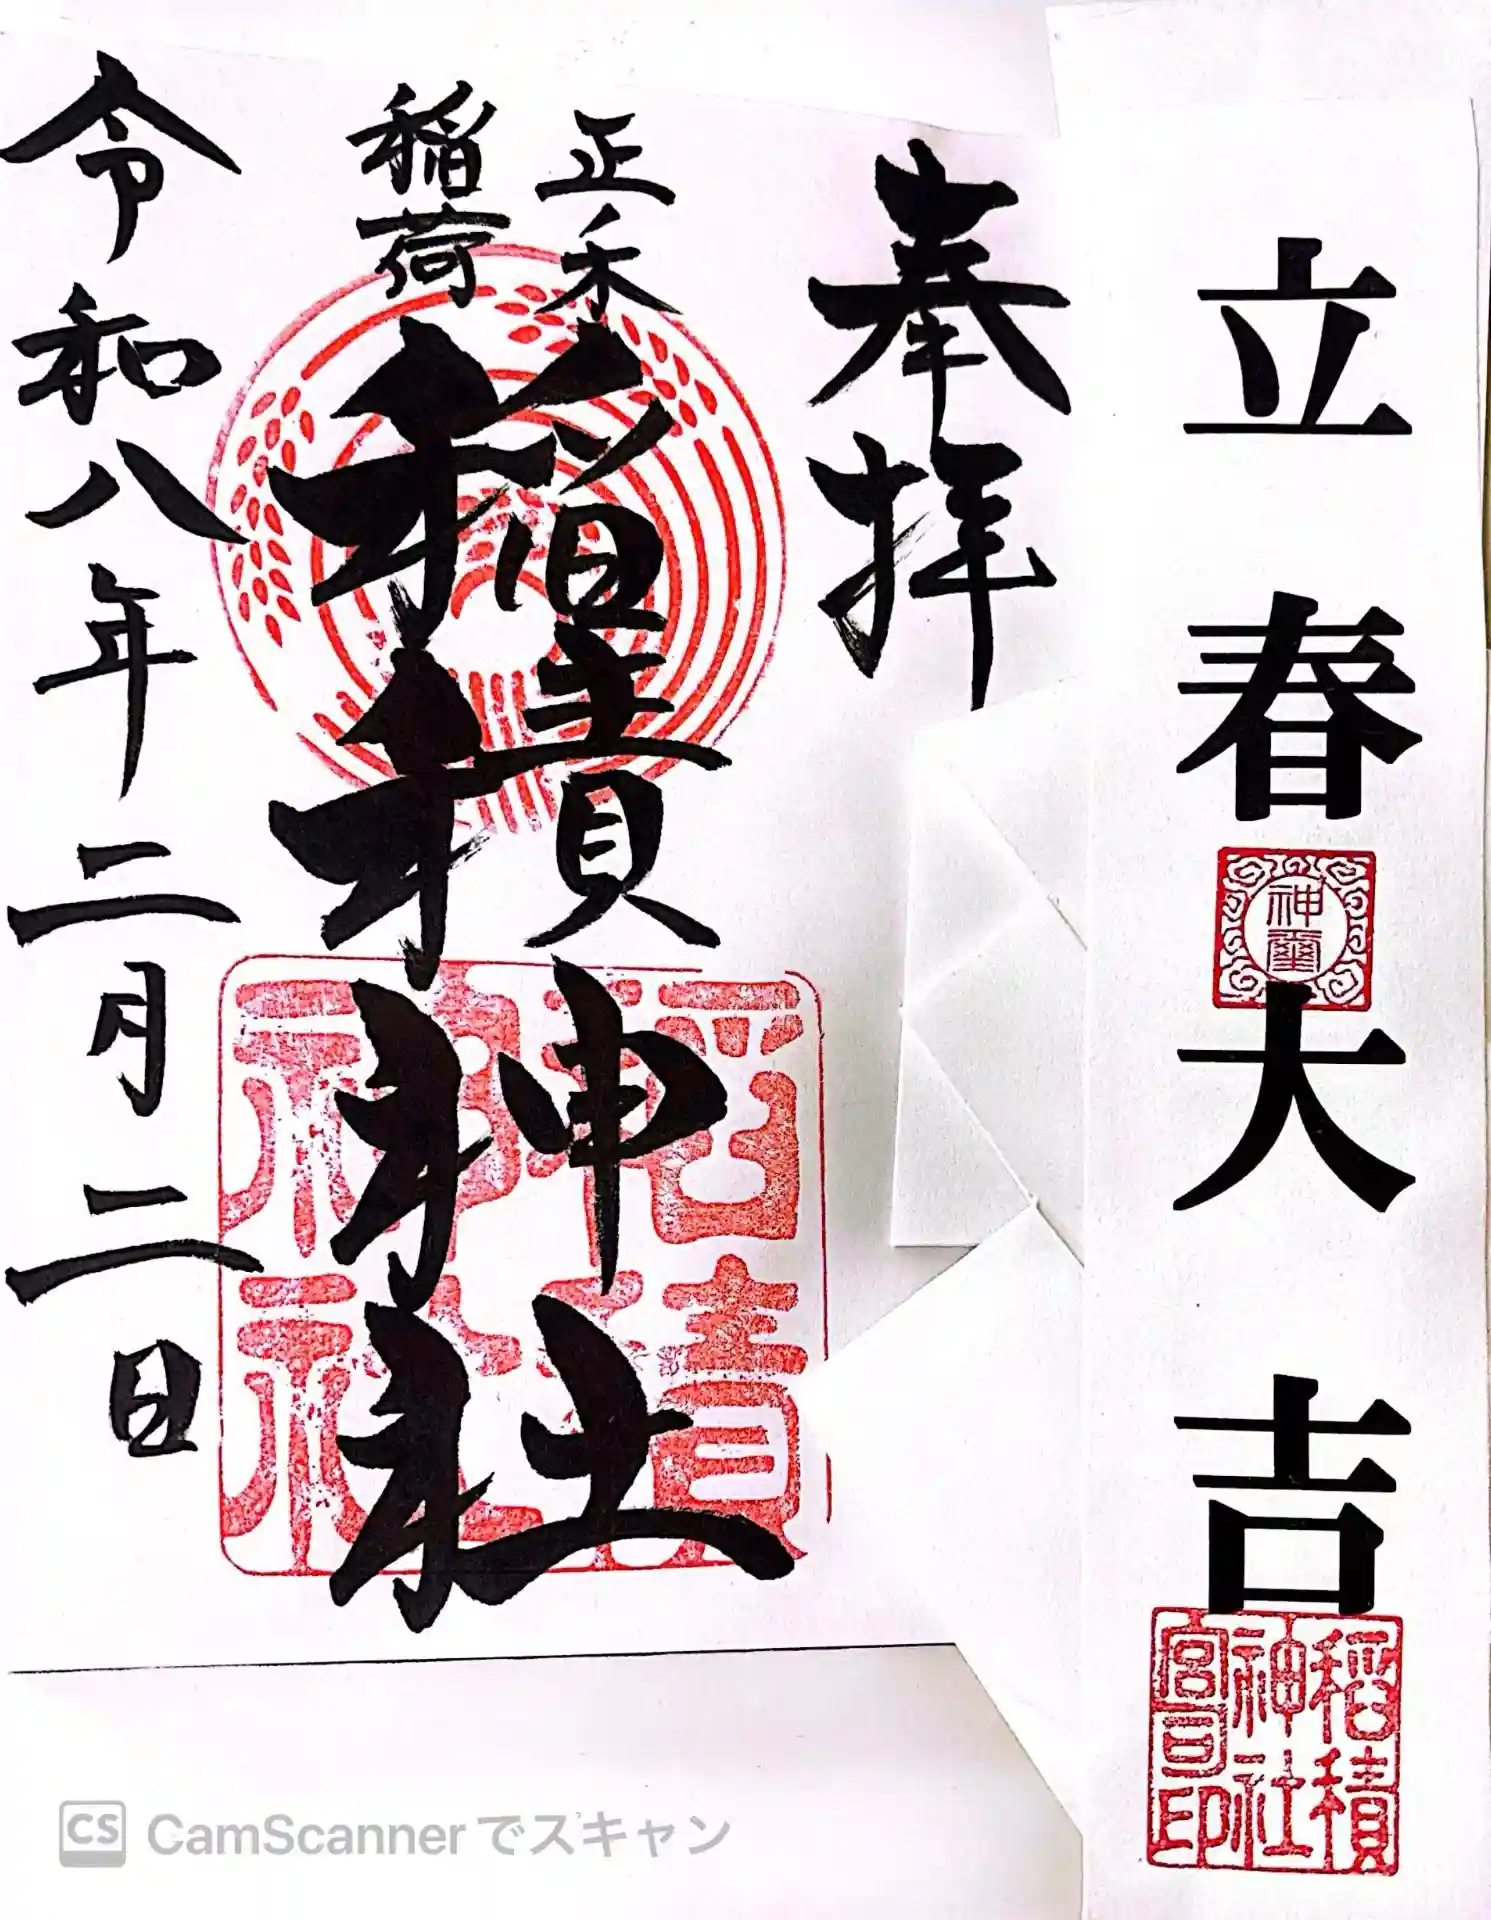 立春大吉
神璽
稲積
神社
宮司印
奉拝
正木
稲荷
稲積神社
稲積
神社
令和八年二月二日
CS CamScannerでスキャン